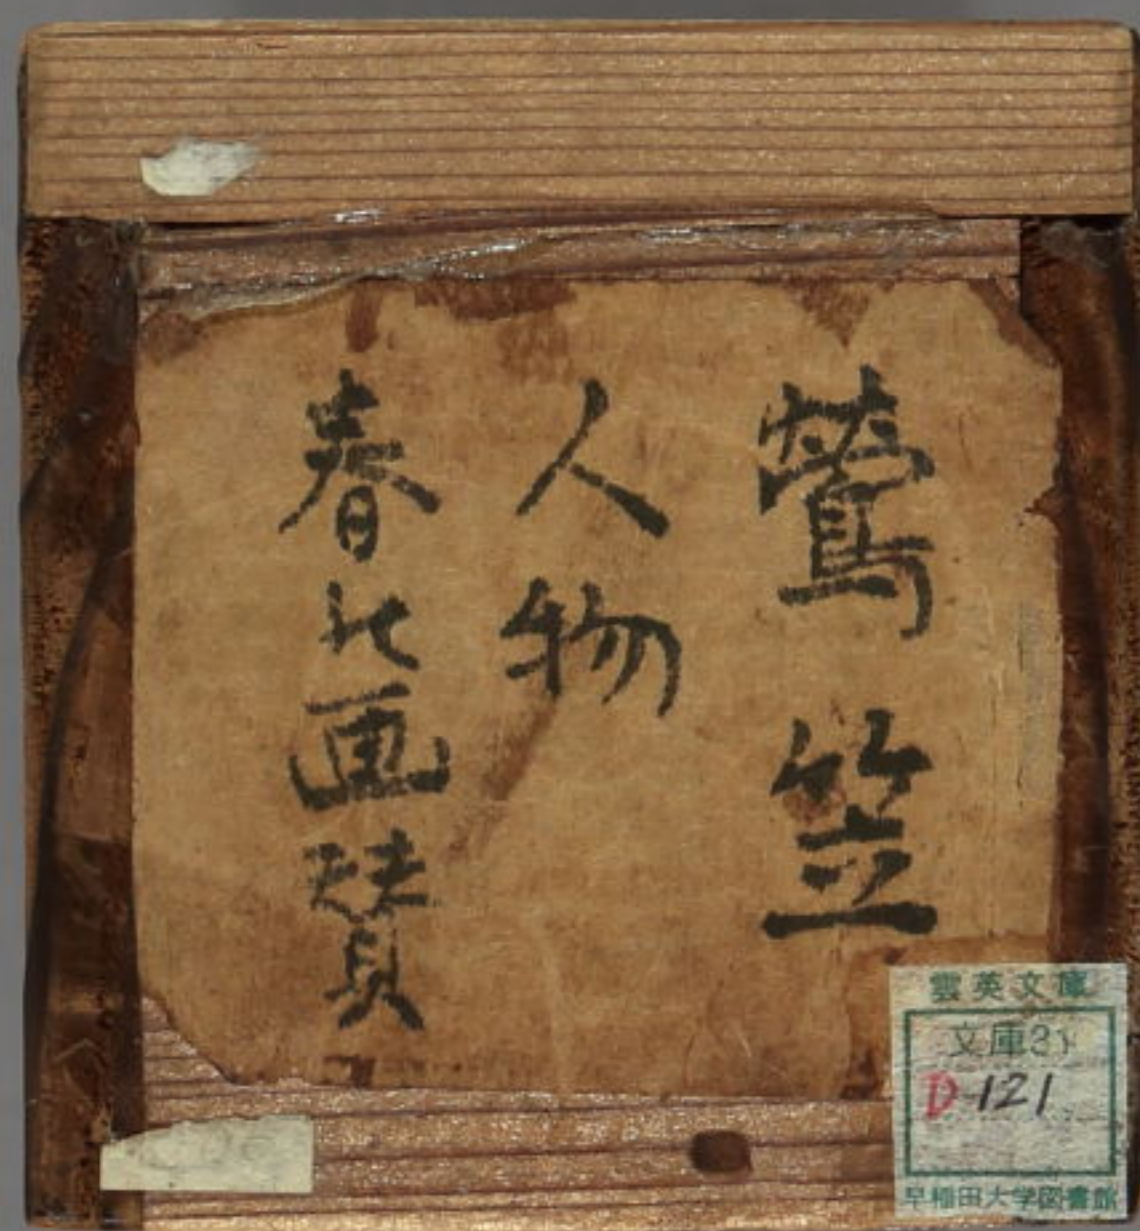 鶯笠
人物
春北画賛
雲英文庫
文庫31
D-121
早稲田大学図書館